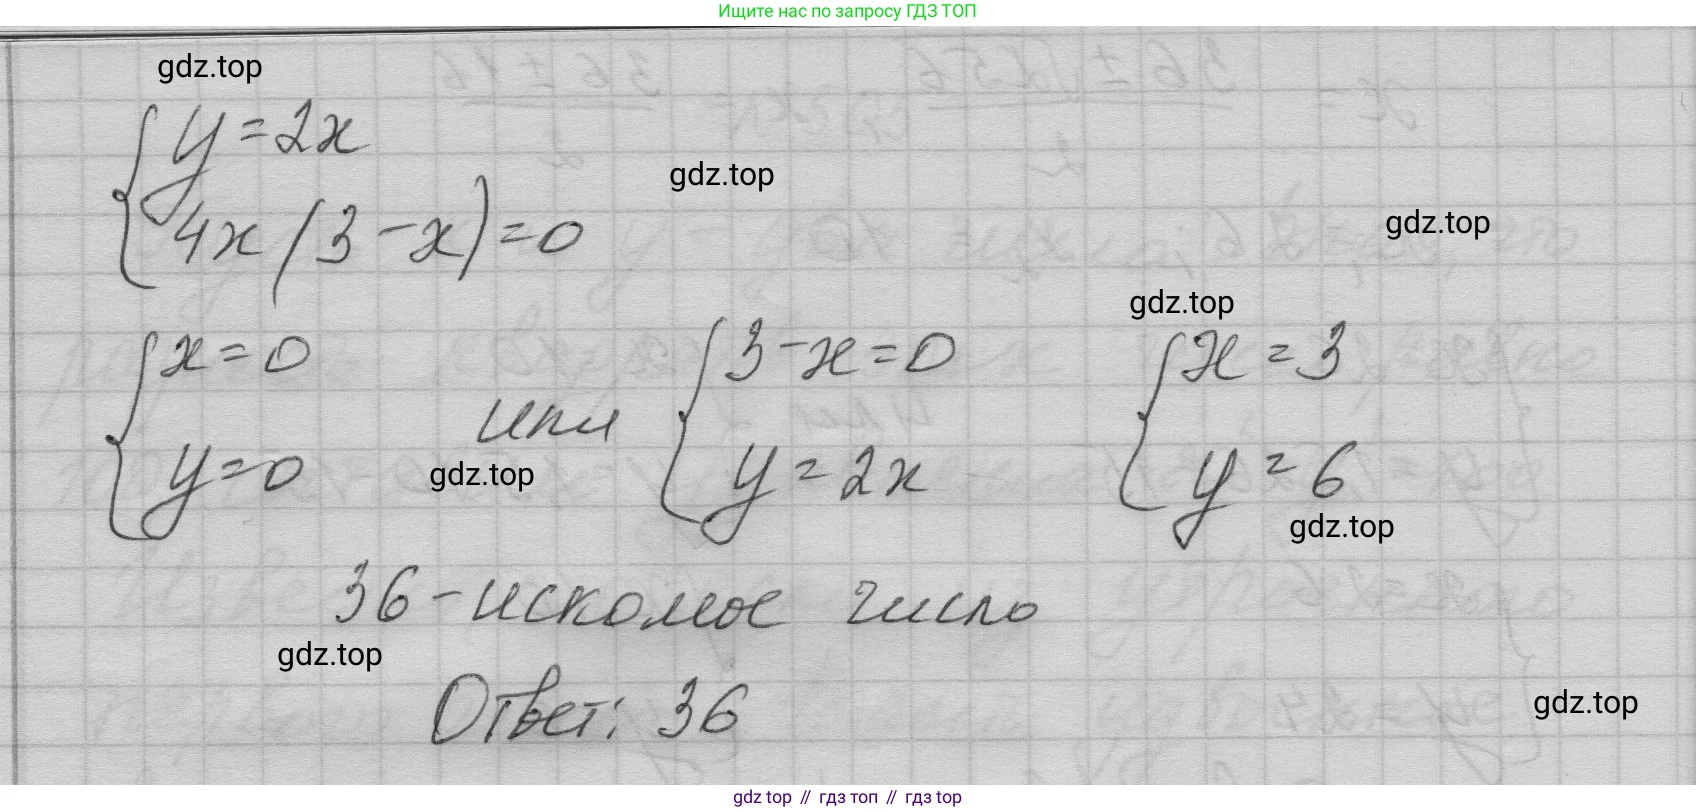 Ищите нас по запросу ГДЗ ТОП
gdz.top
y = 2x
gdz.top
4x(3 - x) = 0
gdz.top
gdz.top
x = 0
3 - x = 0
x = 3
или
y = 0
gdz.top
y = 2x
y = 6
gdz.top
36 - искомое число
gdz.top
Ответ: 36
gdz.top
gdz top // гдз топ // гдз top